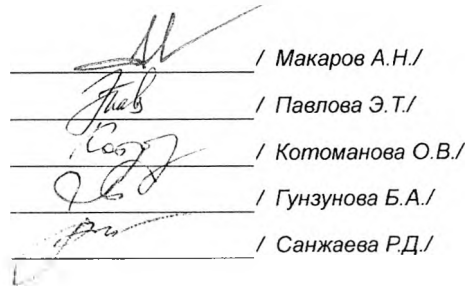 / Макаров А.Н./
/ Павлова Э.Т./
/ Котоманова О.В./
/ Гунзунова Б.А./
/ Санжаева Р.Д./